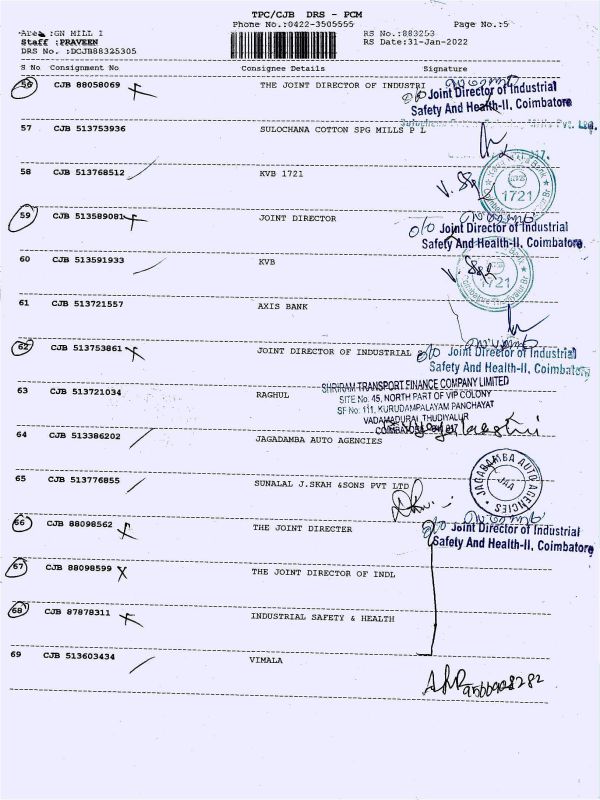 TPC/CJB DRS - PCM
Phone No.:0422-3505555 Page No.:5
Area :GN MILL I RS No.:883253
Staff :PRAVEEN RS Date:31-Jan-2022
DRS No. :DCJB88325305
S No Consignment No Consignee Details Signature
56 CJB 88058069 THE JOINT DIRECTOR OF INDUSTRI
O/O Joint Director of Industrial
Safety And Health-II, Coimbatore
57 CJB 513753936 SULOCHANA COTTON SPG MILLS P L
58 CJB 513768512 KVB 1721
1721
59 CJB 513589081 JOINT DIRECTOR
O/O Joint Director of Industrial
Safety And Health-II, Coimbatore
60 CJB 513591933 KVB
1721
61 CJB 513721557 AXIS BANK
62 CJB 513753861 JOINT DIRECTOR OF INDUSTRIAL
O/O Joint Director of Industrial
Safety And Health-II, Coimbatore
63 CJB 513721034 RAGHUL
SHRIRAM TRANSPORT FINANCE COMPANY LIMITED
SITE No. 45, NORTH PART OF VIP COLONY
SF No: 111, KURUDAMPALAYAM PANCHAYAT
VADAMADURAI, THUDIYALUR
64 CJB 513386202 JAGADAMBA AUTO AGENCIES
JAGADAMBA AUTO AGENCIES
JAA
65 CJB 513776855 SUNALAL J.SKAH &SONS PVT LTD
66 CJB 88098562 THE JOINT DIRECTER
O/O Joint Director of Industrial
Safety And Health-II, Coimbatore
67 CJB 88098599 THE JOINT DIRECTOR OF INDL
68 CJB 87878311 INDUSTRIAL SAFETY & HEALTH
69 CJB 513603434 VIMALA